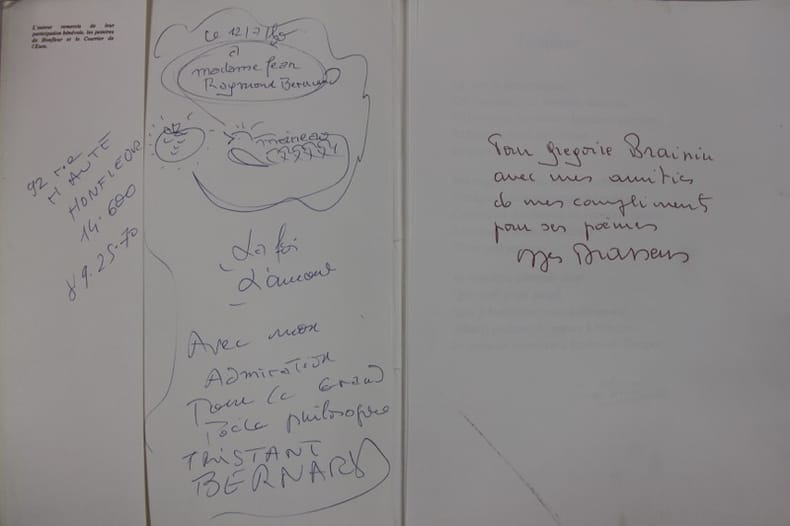 L'auteur remercie de leur
participation bénévole, les peintres
de Honfleur et le Courrier de
l'Eure.
92 rue
Haute
HONFLEUR
14.600
89.25.70
Le 12/7/80
à
madame Jean
Raymond Bernard
moineau
La foi
L'amour
Avec mon
Admiration
Pour le Grand
Poète philosophe
TRISTANT
BERNARD
Pour gregoire Brainin
avec mes amitiés
et mes compliments
pour ses poèmes
Brassens